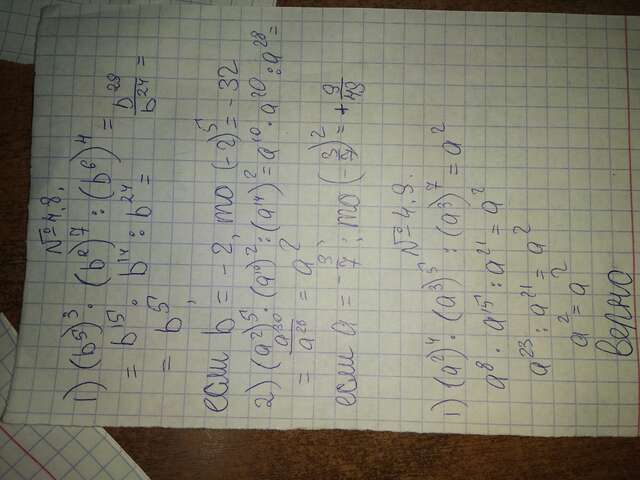 №4.8.
1) (b⁵)³ · (b²)⁷ : (b⁶)⁴ =
= b¹⁵ · b¹⁴ : b²⁴ = b²⁹/b²⁴ =
= b⁵,
если b = -2, то (-2)⁵ = -32
2) (a²)⁵ · (a¹⁰)² : (a¹⁴)² = a¹⁰ · a²⁰ : a²⁸ =
= a³⁰/a²⁸ = a²
если a = -3/7; то (-3/7)² = +9/49
№4.9.
1) (a²)⁴ · (a³)⁵ : (a³)⁷ = a²
a⁸ · a¹⁵ : a²¹ = a²
a²³ : a²¹ = a²
a² = a²
верно